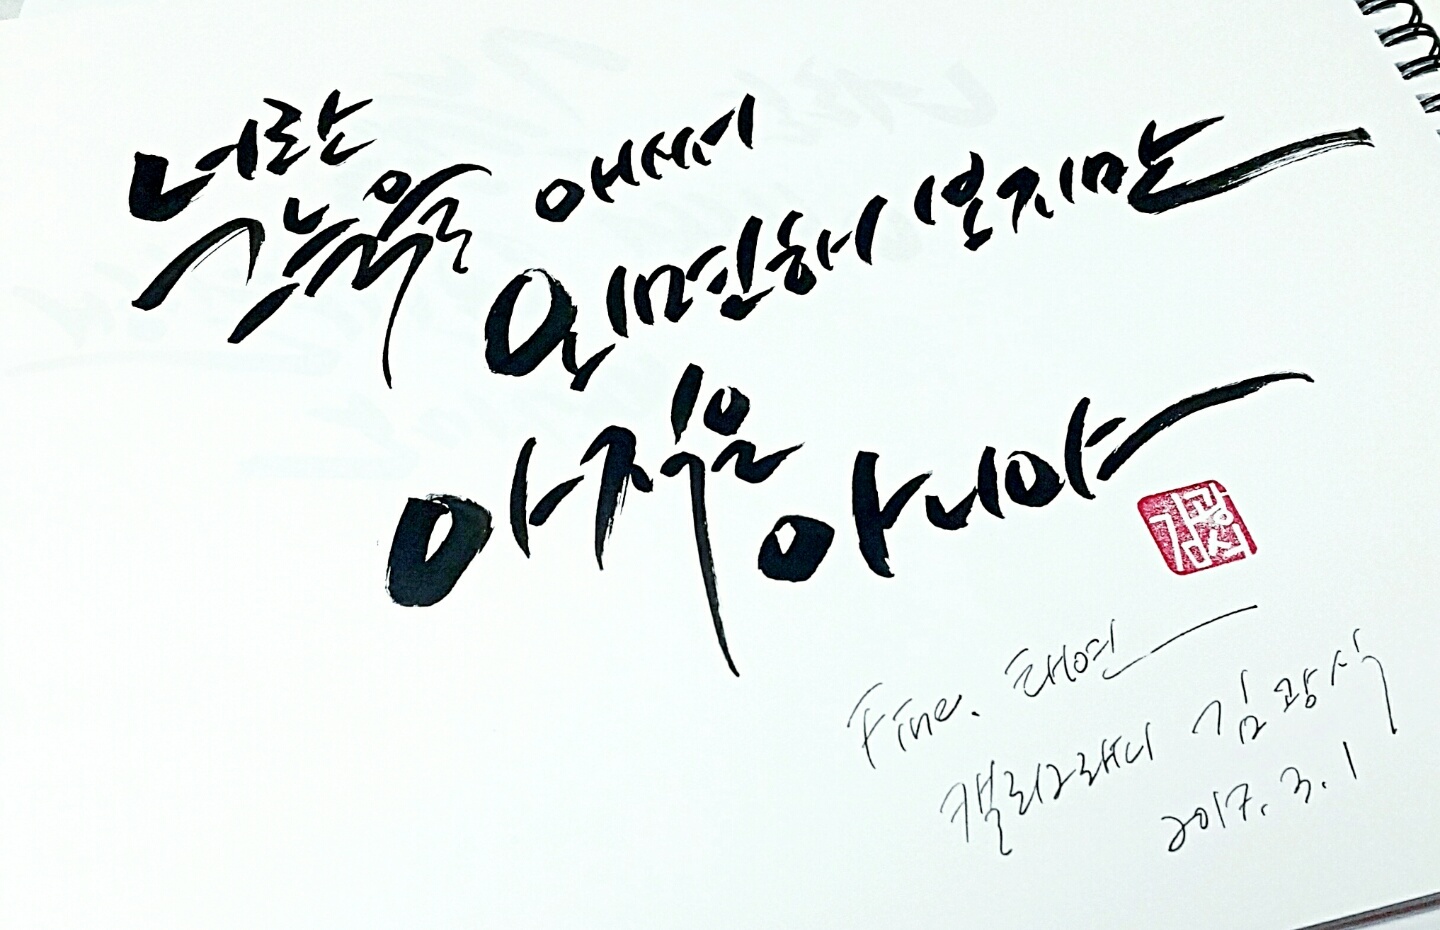 너란
그늘을 애써
외면해 보지만
아직은 아니야
김광식
Fine. 태연
캘리그래피 김광식
2017. 3. 1